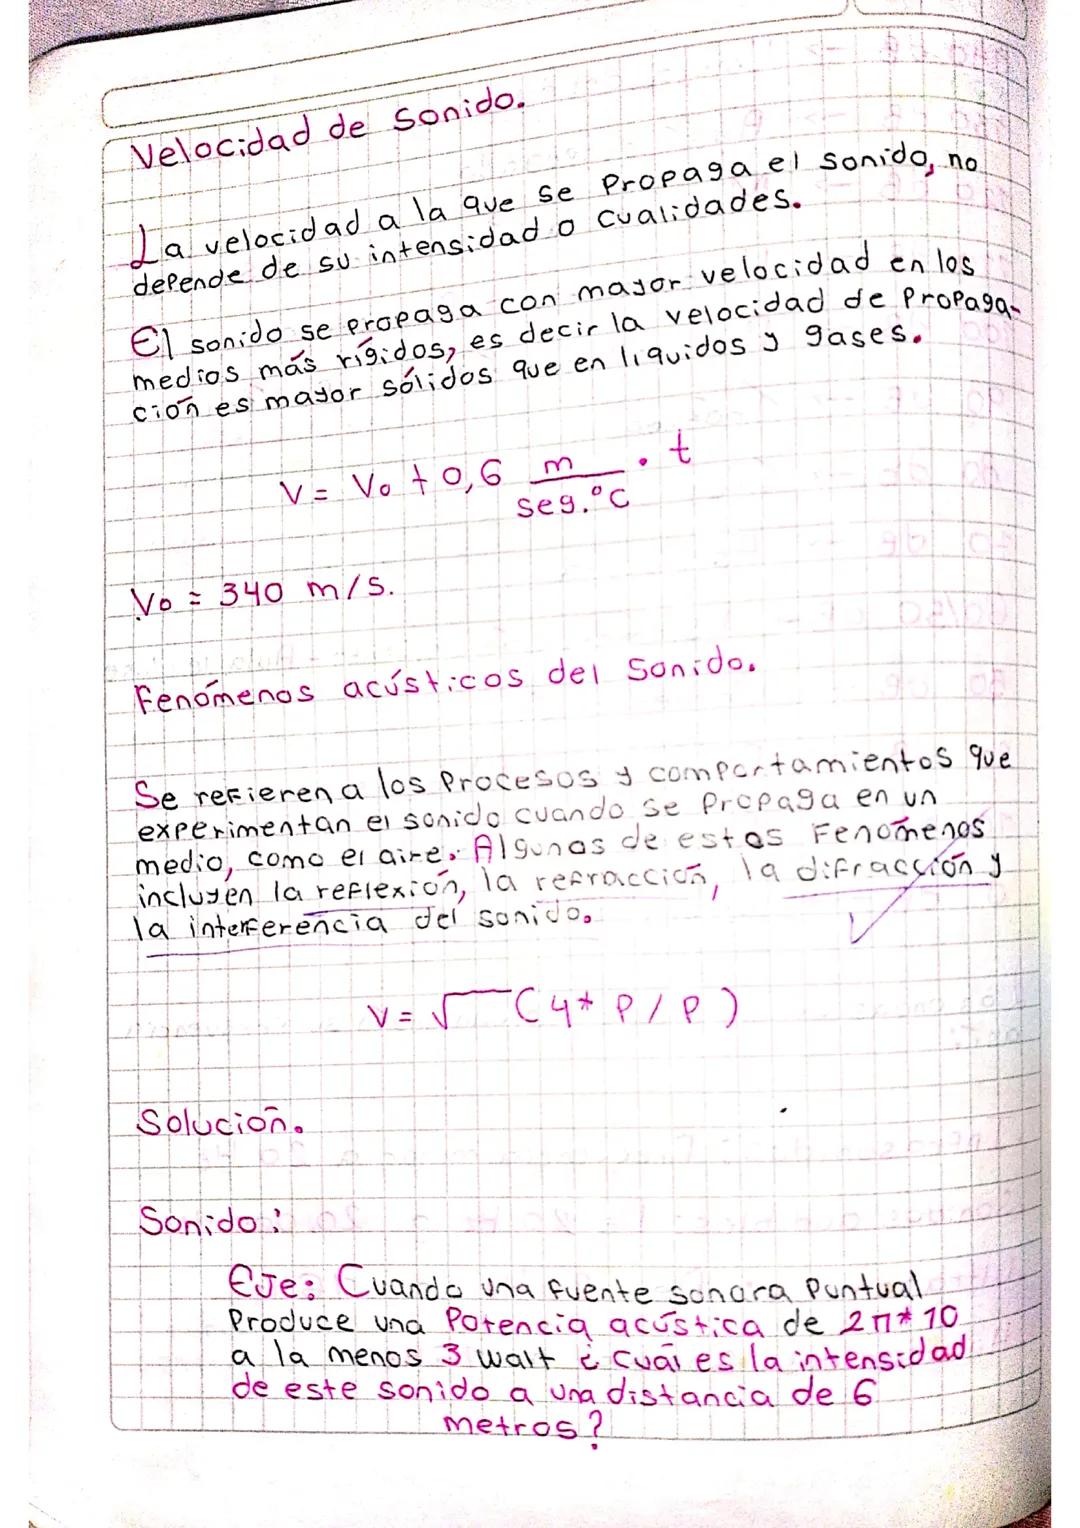 Velocidad de Sonido.
La velocidad a la que se Propaga el sonido, no
depende de su intensidad o cualidades.
El sonido se propaga con mayor velocidad en los
medios más rígidos, es decir la velocidad de Propaga-
ción es mayor sólidos que en líquidos y gases.
V = Vo + 0,6 m/seg.°C . t
Vo = 340 m/s.
Fenómenos acústicos del Sonido.
Se refieren a los Procesos y comportamientos que
experimentan el sonido cuando se Propaga en un
medio, como el aire. Algunos de estos Fenómenos
incluyen la reflexión, la refracción, la difracción y
la interferencia del sonido.
V = √ (4* P / P)
Solución.
Sonido:
Eje: Cuando una fuente sonora Puntual
Produce una Potencia acústica de 2π*10
a la menos 3 walt ¿cuál es la intensidad
de este sonido a una distancia de 6
metros?